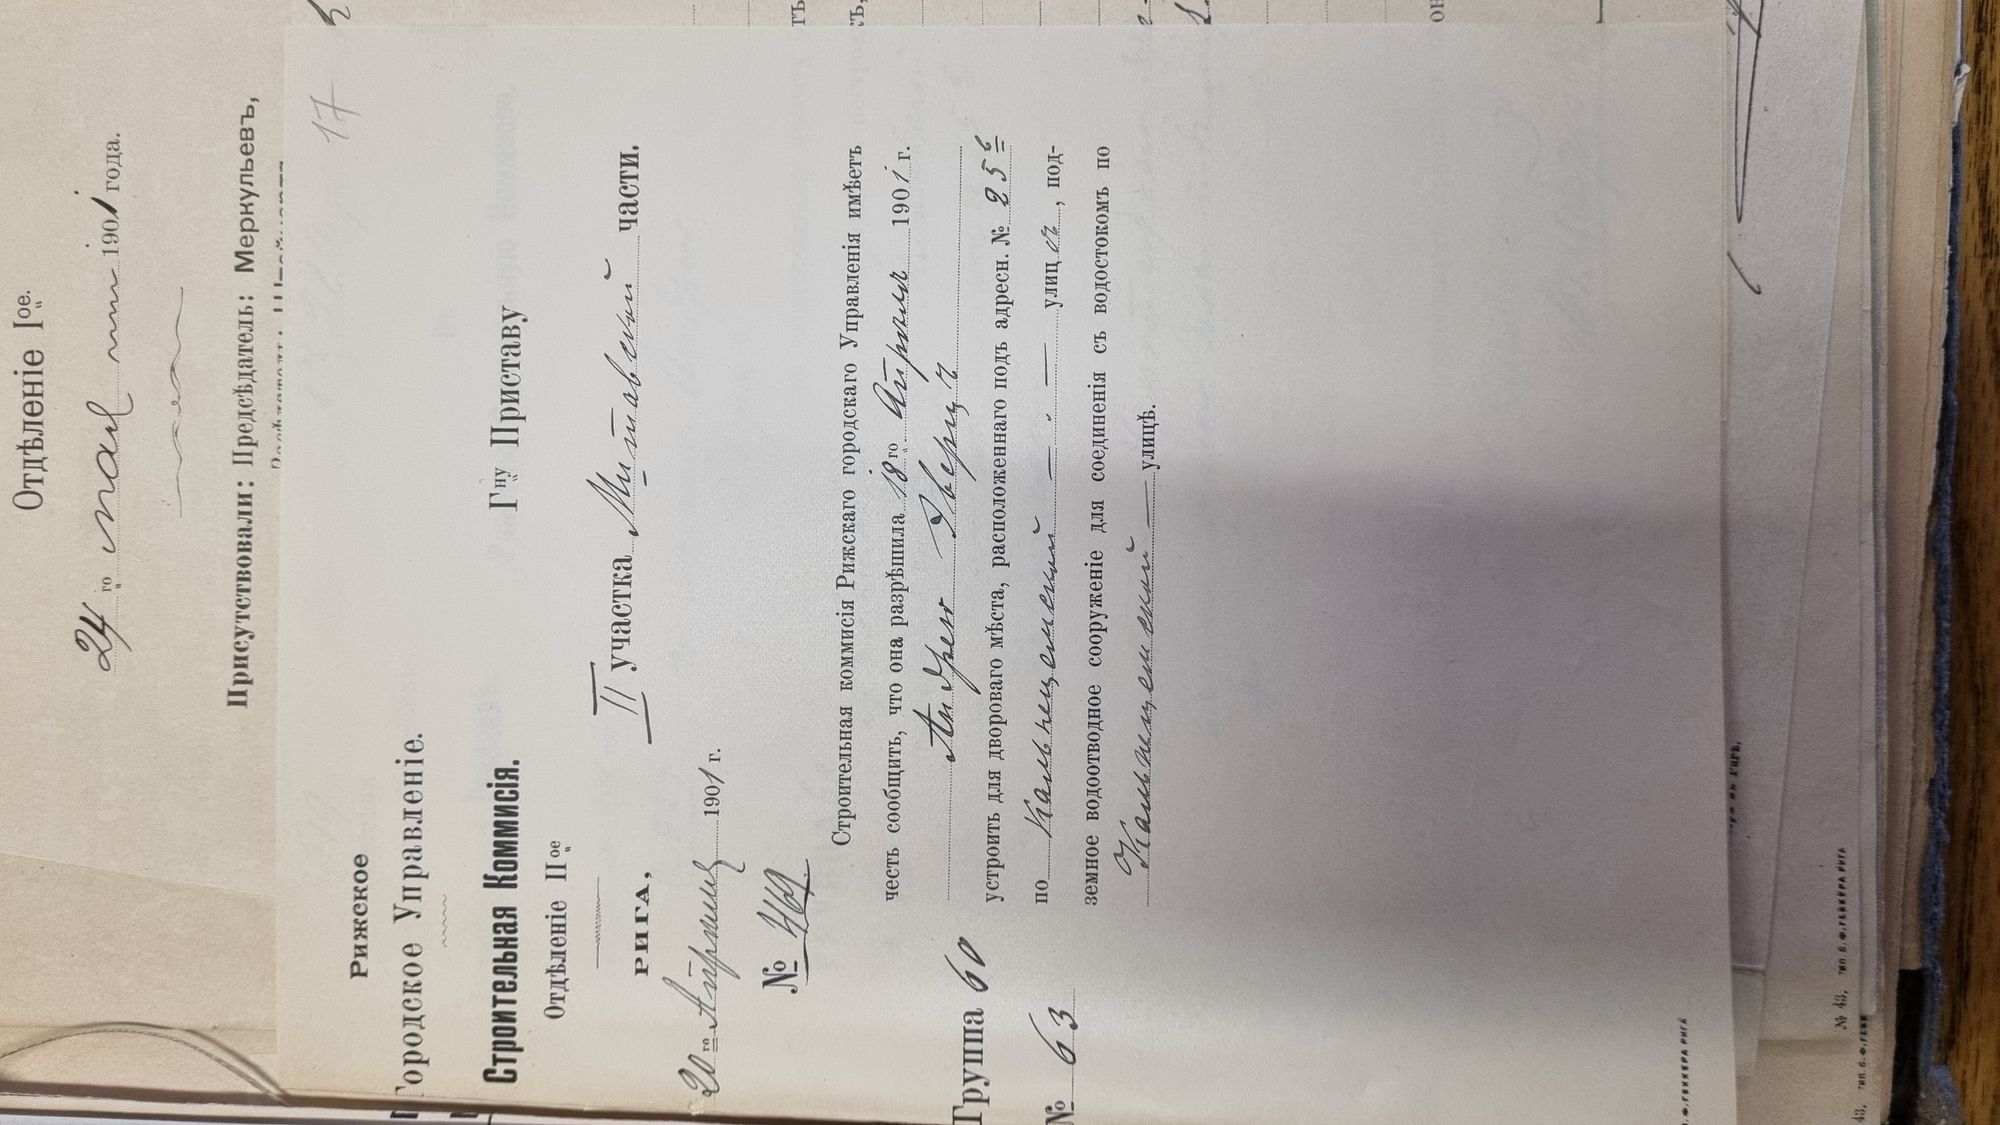 Отдѣленіе Iое.
24го мая 1901 года.
Присутствовали: Предсѣдатель: Меркульевъ,
17
Рижское
Городское Управленіе.
Строительная Коммисія.
Отдѣленіе IIое
РИГА,
20го Апрѣля 1901 г.
№
Гну Приставу
II участка Митавской части.
Строительная коммисія Рижскаго городскаго Управленія имѣетъ
честь сообщить, что она разрѣшила 18го Апрѣля 1901 г.
Андрею Звергцъ
устроить для двороваго мѣста, расположеннаго подъ адресн. № 25б
по Кальнецемской улицѣ, под-
земное водоотводное сооруженіе для соединенія съ водостокомъ по
Кальнецемской улицѣ.
Группа 60
№ 63
№ 43.